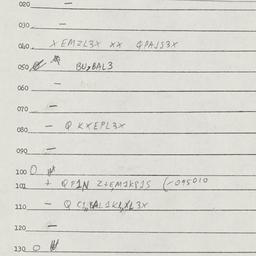 020 —
030 —
040 X EMZL3X XX QPAJS3X
050 BU,BAL3
060 —
070 —
080 — Q KXEPL3X
090 —
100 0
101 + QF1N Z+EM1KPJS (-095010
110 — Q
120 —
130 0